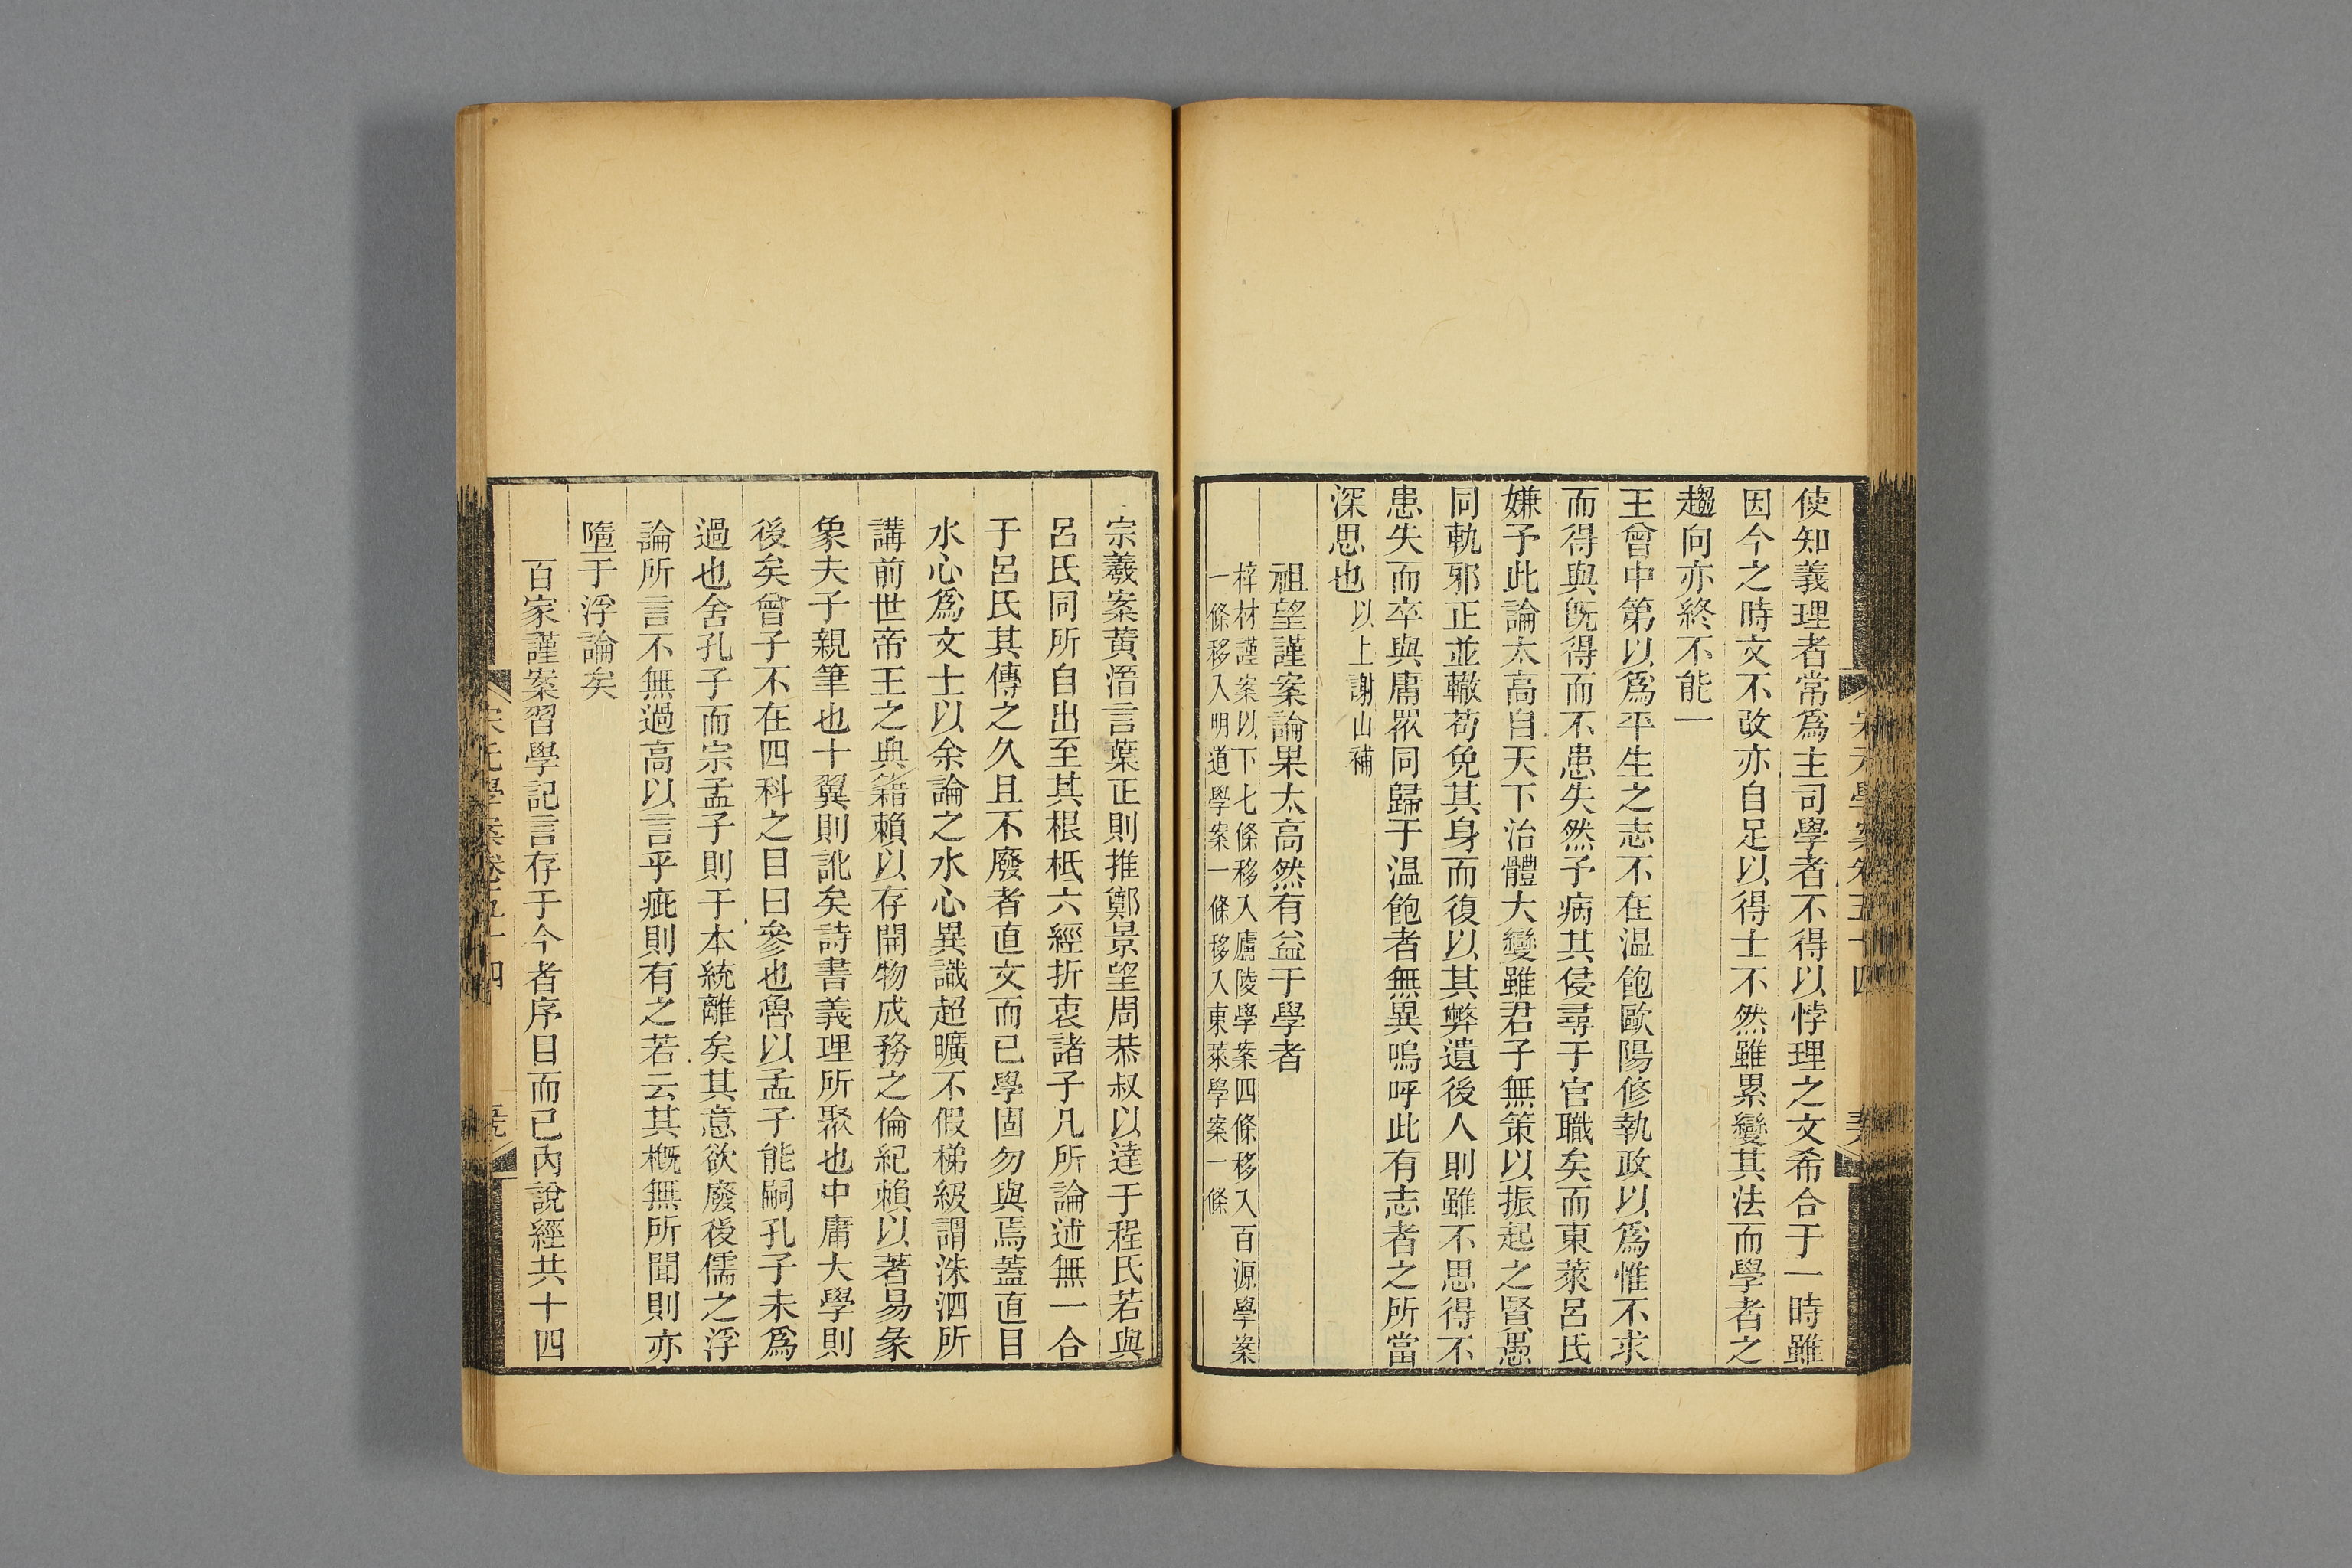 使知義理者常爲主司學者不得以悖理之文希合于一時雖
因今之時文不改亦自足以得士不然雖累變其法而學者之
趨向亦終不能一
王曾中第以爲平生之志不在温飽歐陽修執政以爲惟不求
而得與旣得而不患失然予病其侵尋于官職矣而東萊呂氏
嫌予此論太高自天下治體大變雖君子無策以振起之賢愚
同軌邪正並轍苟免其身而復以其弊遺後人則雖不思得不
患失而卒與庸眾同歸于温飽者無異嗚呼此有志者之所當
深思也以上謝山補
祖望謹案論果太高然有益于學者
梓材謹案以下七條移入廬陵學案四條移入百源學案
一條移入明道學案一條移入東萊學案一條
宗羲案黄溍言葉正則推鄭景望周恭叔以達于程氏若與
呂氏同所自出至其根柢六經折衷諸子凡所論述無一合
于呂氏其傳之久且不廢者直文而已學固勿與焉蓋直目
水心爲文士以余論之水心異識超曠不假梯級謂洙泗所
講前世帝王之典籍賴以存開物成務之倫紀賴以著易彖
象夫子親筆也十翼則訛矣詩書義理所聚也中庸大學則
後矣曾子不在四科之目曰參也魯以孟子能嗣孔子未爲
過也舍孔子而宗孟子則于本統離矣其意欲廢後儒之浮
論所言不無過高以言乎疵則有之若云其概無所聞則亦
墮于浮論矣
百家謹案習學記言存于今者序目而已內說經共十四
宋元學案卷五十四